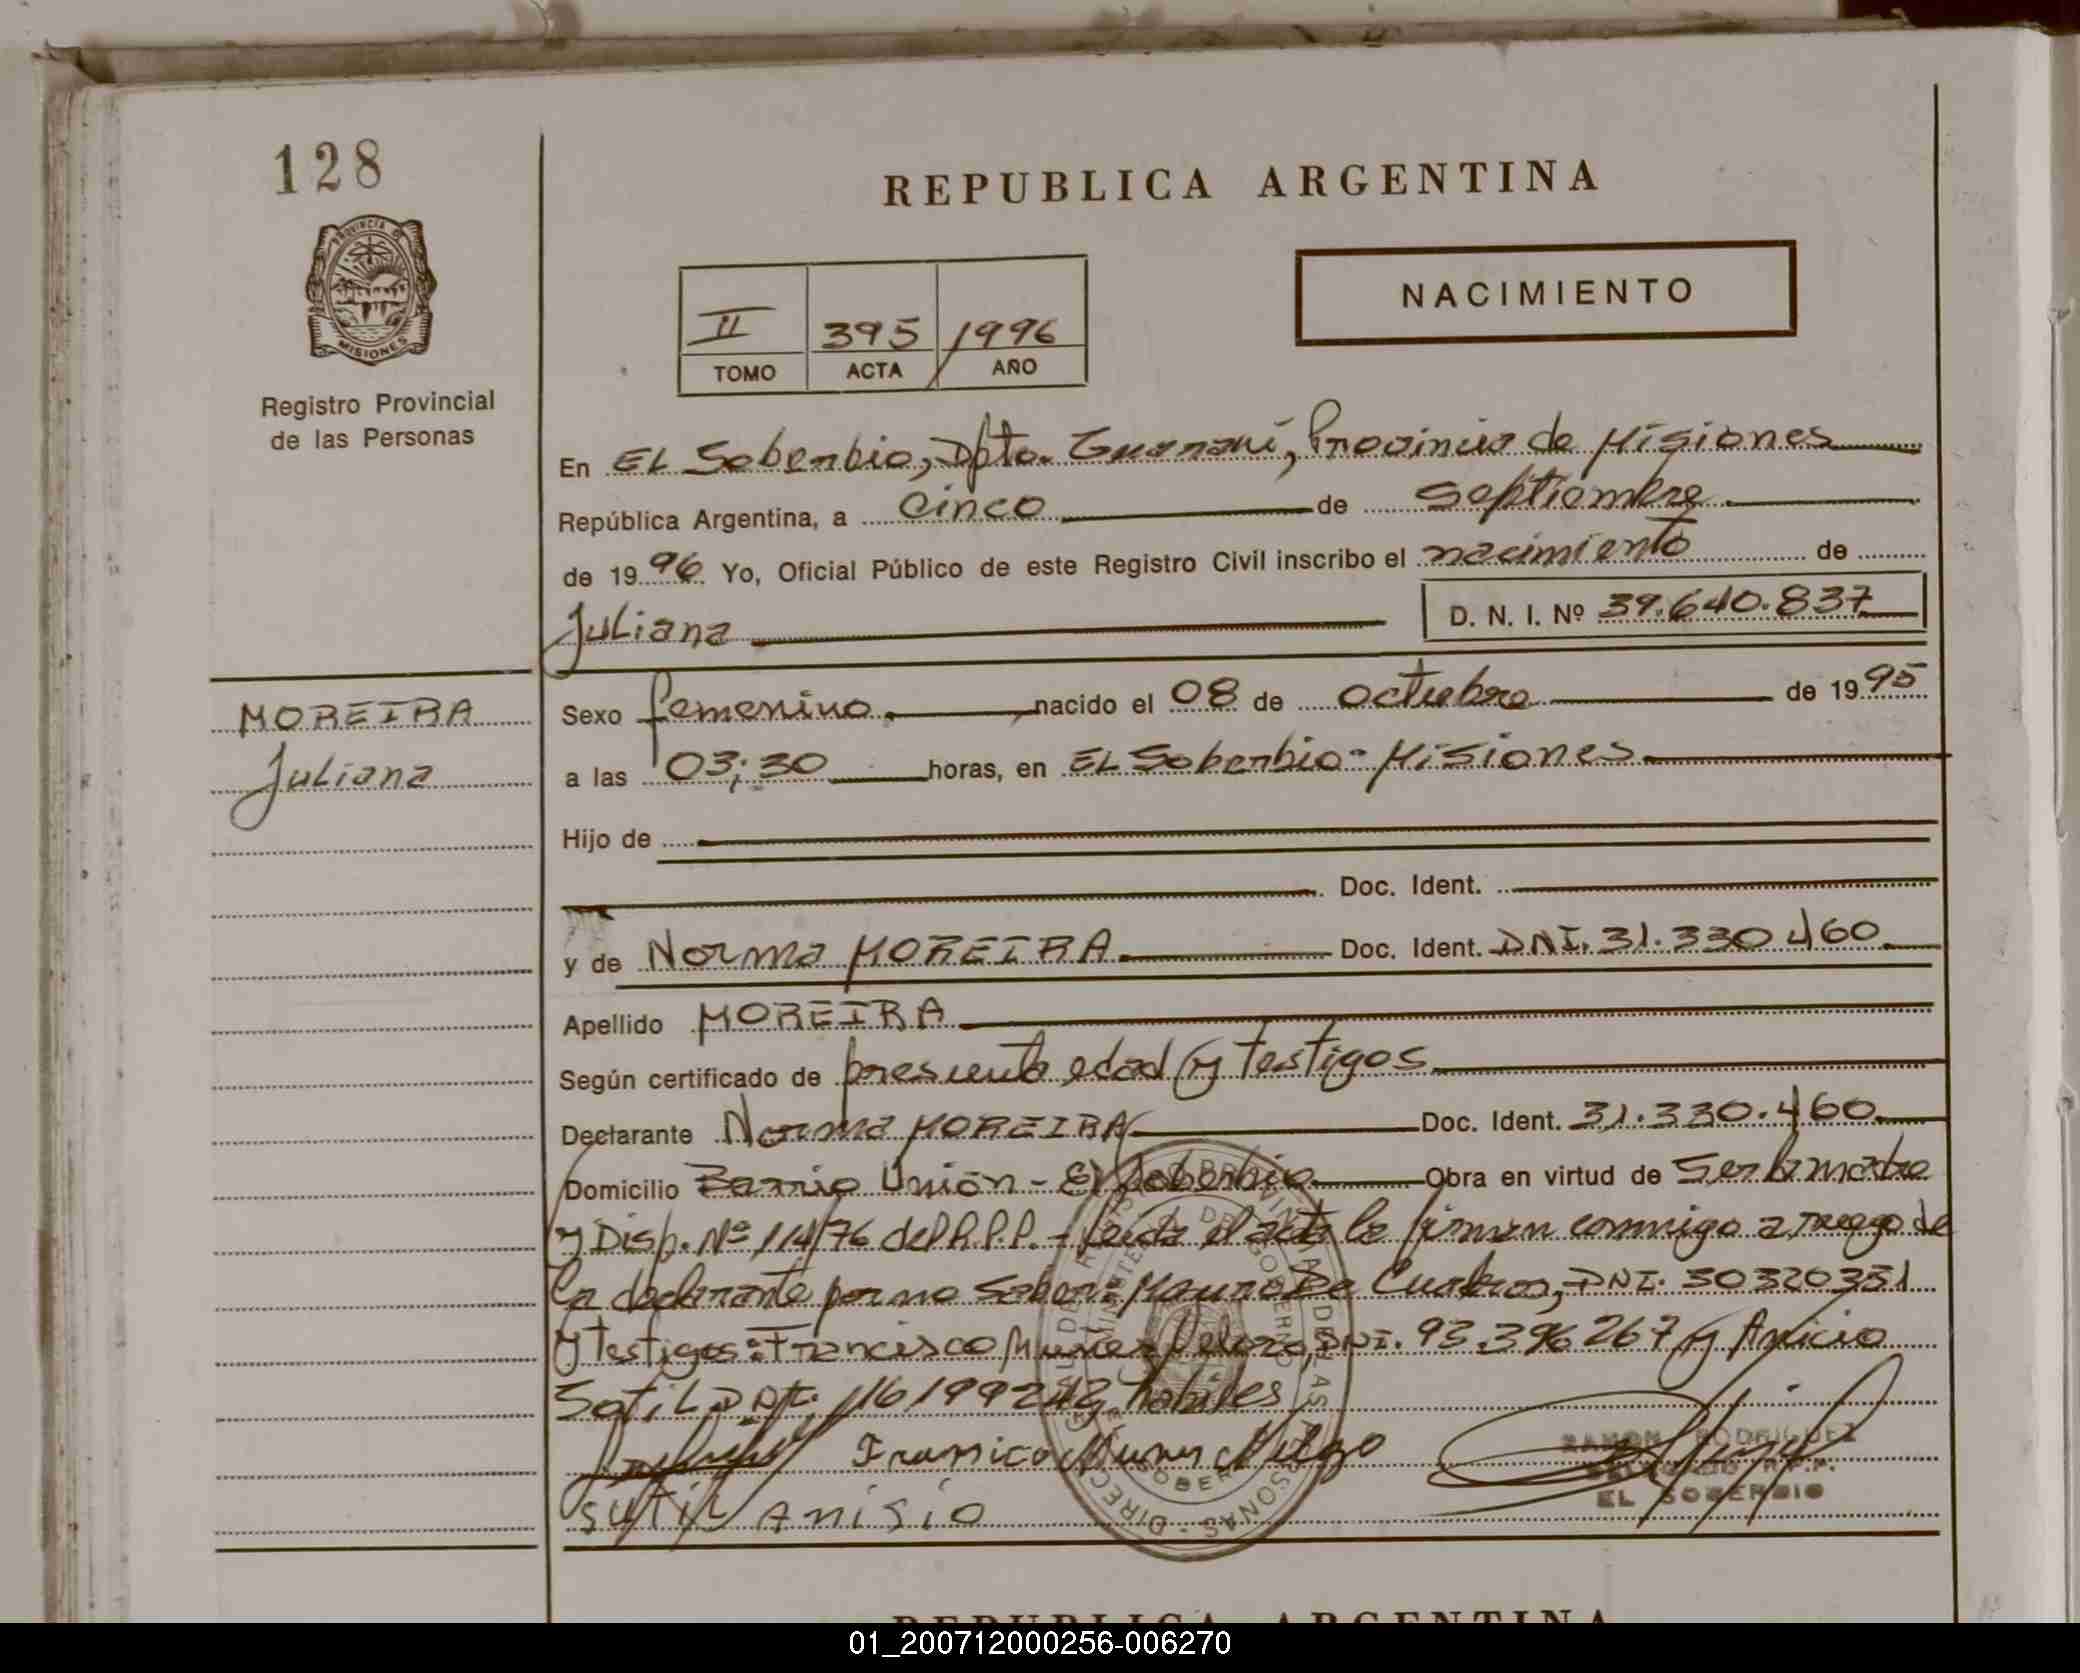 128
REPUBLICA ARGENTINA
NACIMIENTO
II 395 1996
TOMO ACTA AÑO
PROVINCIA D MISIONES
Registro Provincial
de las Personas
En El Soberbio, Dpto. Guaraní, Provincia de Misiones
República Argentina, a cinco de septiembre
de 1996 Yo, Oficial Público de este Registro Civil inscribo el nacimiento de
Juliana D. N. I. Nº 39.640.837
MOREIRA
Juliana
Sexo femenino nacido el 08 de octubre de 1995
a las 03:30 horas, en El Soberbio - Misiones
Hijo de
Doc. Ident.
y de Norma MOREIRA Doc. Ident. DNI. 31.330.460
Apellido MOREIRA
Según certificado de presunta edad y testigos
Declarante Norma MOREIRA Doc. Ident. 31.330.460
Domicilio Barrio Unión - El Soberbio Obra en virtud de ser la madre
y Disp. Nº 114/76 del R.P.P. - Leída el acta la firman conmigo a ruego de
la declarante por no saber: Mauro De Cuadros, DNI. 30320351
y testigos: Francisco DNI. 93.396267 y Anicio
Sotil 16199242 hábiles
Francisco
SUTIL ANISIO
RAMON RODRIGUEZ
DELEGADO R.P.P.
EL SOBERBIO
REPUBLICA ARGENTINA
01_200712000256-006270